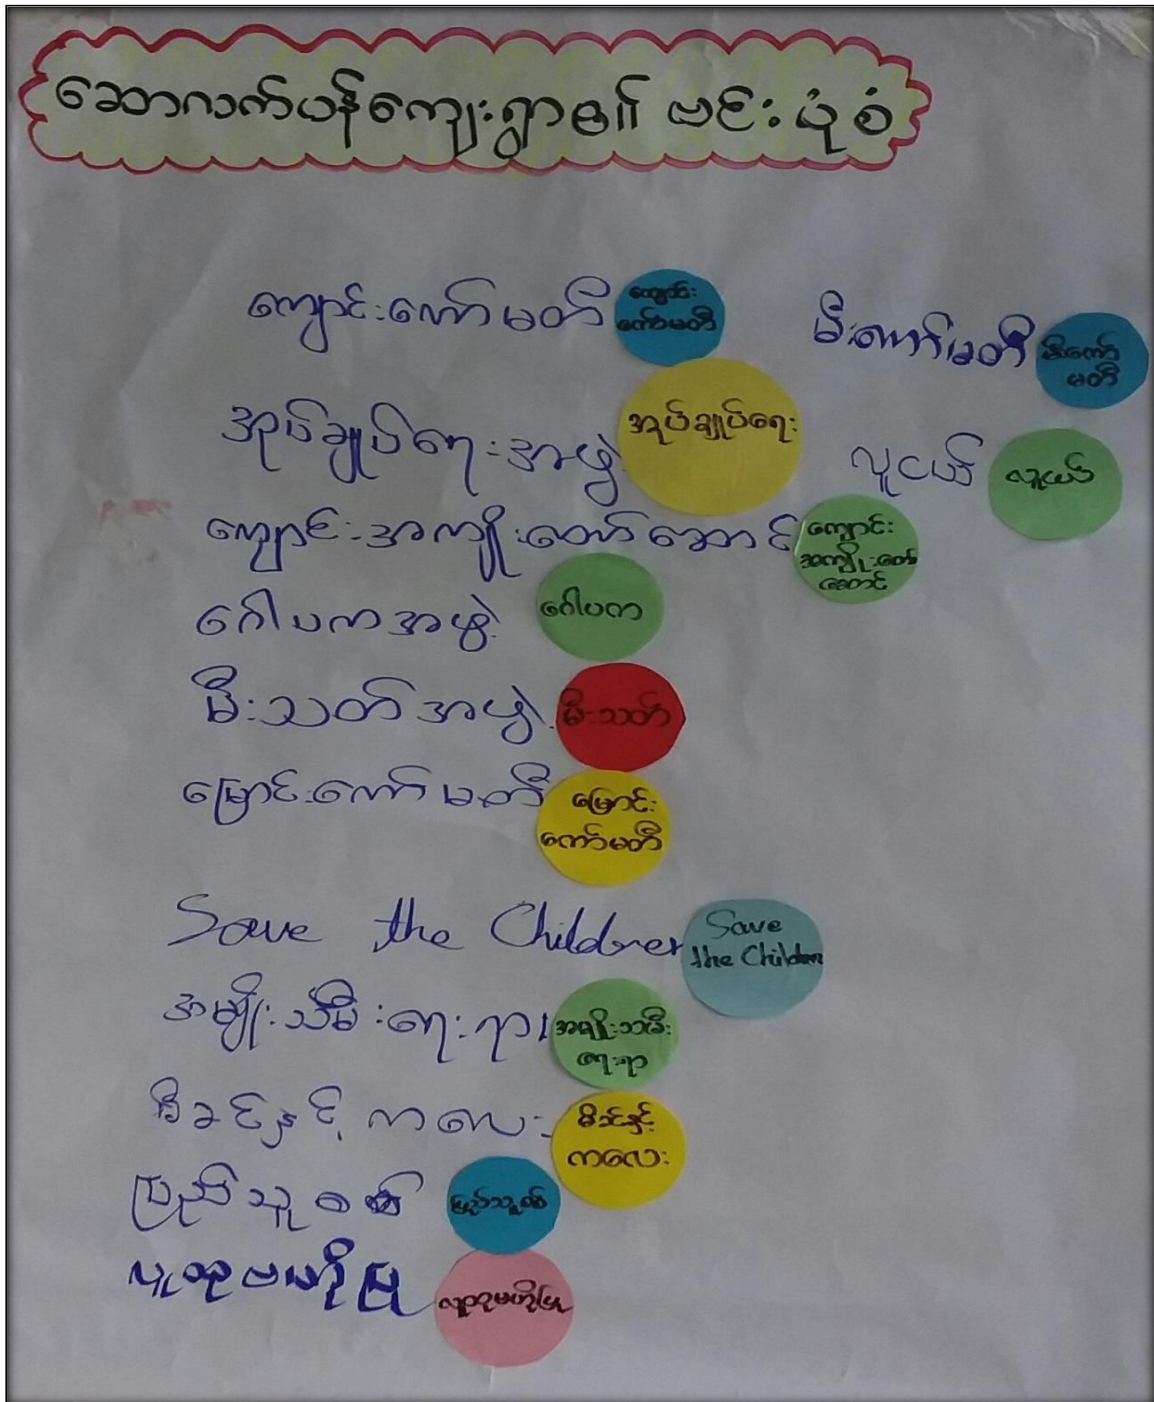 ဆောလက်ပန်ကျေးရွာ၏ ဗင်းပုံစံ
ကျောင်းကော်မတီ
ကျောင်း
ကော်မတီ
မီးကော်မတီ
မီးကော်
မတီ
အုပ်ချုပ်ရေးအဖွဲ့
အုပ်ချုပ်ရေး
လူငယ်
လူငယ်
ကျောင်းအကျိုးတော်ဆောင်
ကျောင်း
အကျိုးတော်
ဆောင်
ဂေါပကအဖွဲ့
ဂေါပက
မီးသတ်အဖွဲ့
မီးသတ်
မြောင်းကော်မတီ
မြောင်း
ကော်မတီ
Save the Children
Save
the Children
အမျိုးသမီးရေးရာ
အမျိုးသမီး
ရေးရာ
မိခင်နှင့် ကလေး
မိခင်နှင့်
ကလေး
ပြည်သူ့စစ်
ပြည်သူ့စစ်
လူထုဗဟိုပြု
လူထုဗဟိုပြု